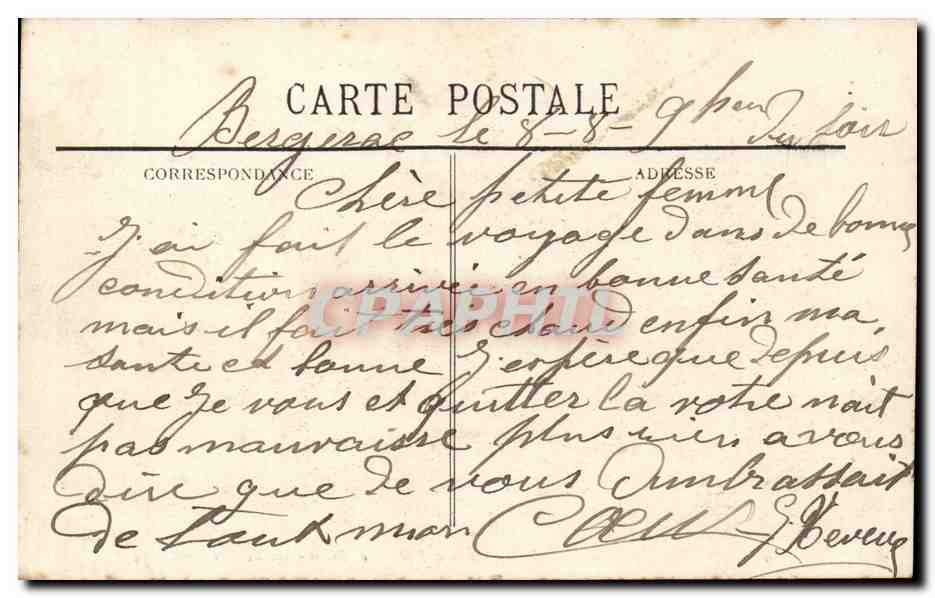 CARTE POSTALE
Bergerac le 8-8- 9 heu du soir
CORRESPONDANCE
ADRESSE
Chère petite femme
J ai fait le voyage dans de bonne
condition arrivée en bonne santé
mais il fait très chaud enfin ma
santé est bonne J espère que depuis
que Je vous et quitter la votre nait
pas mauvaise plus rien a vous
dire que de vous
de tout mon Coeur G.
CPAPHIL